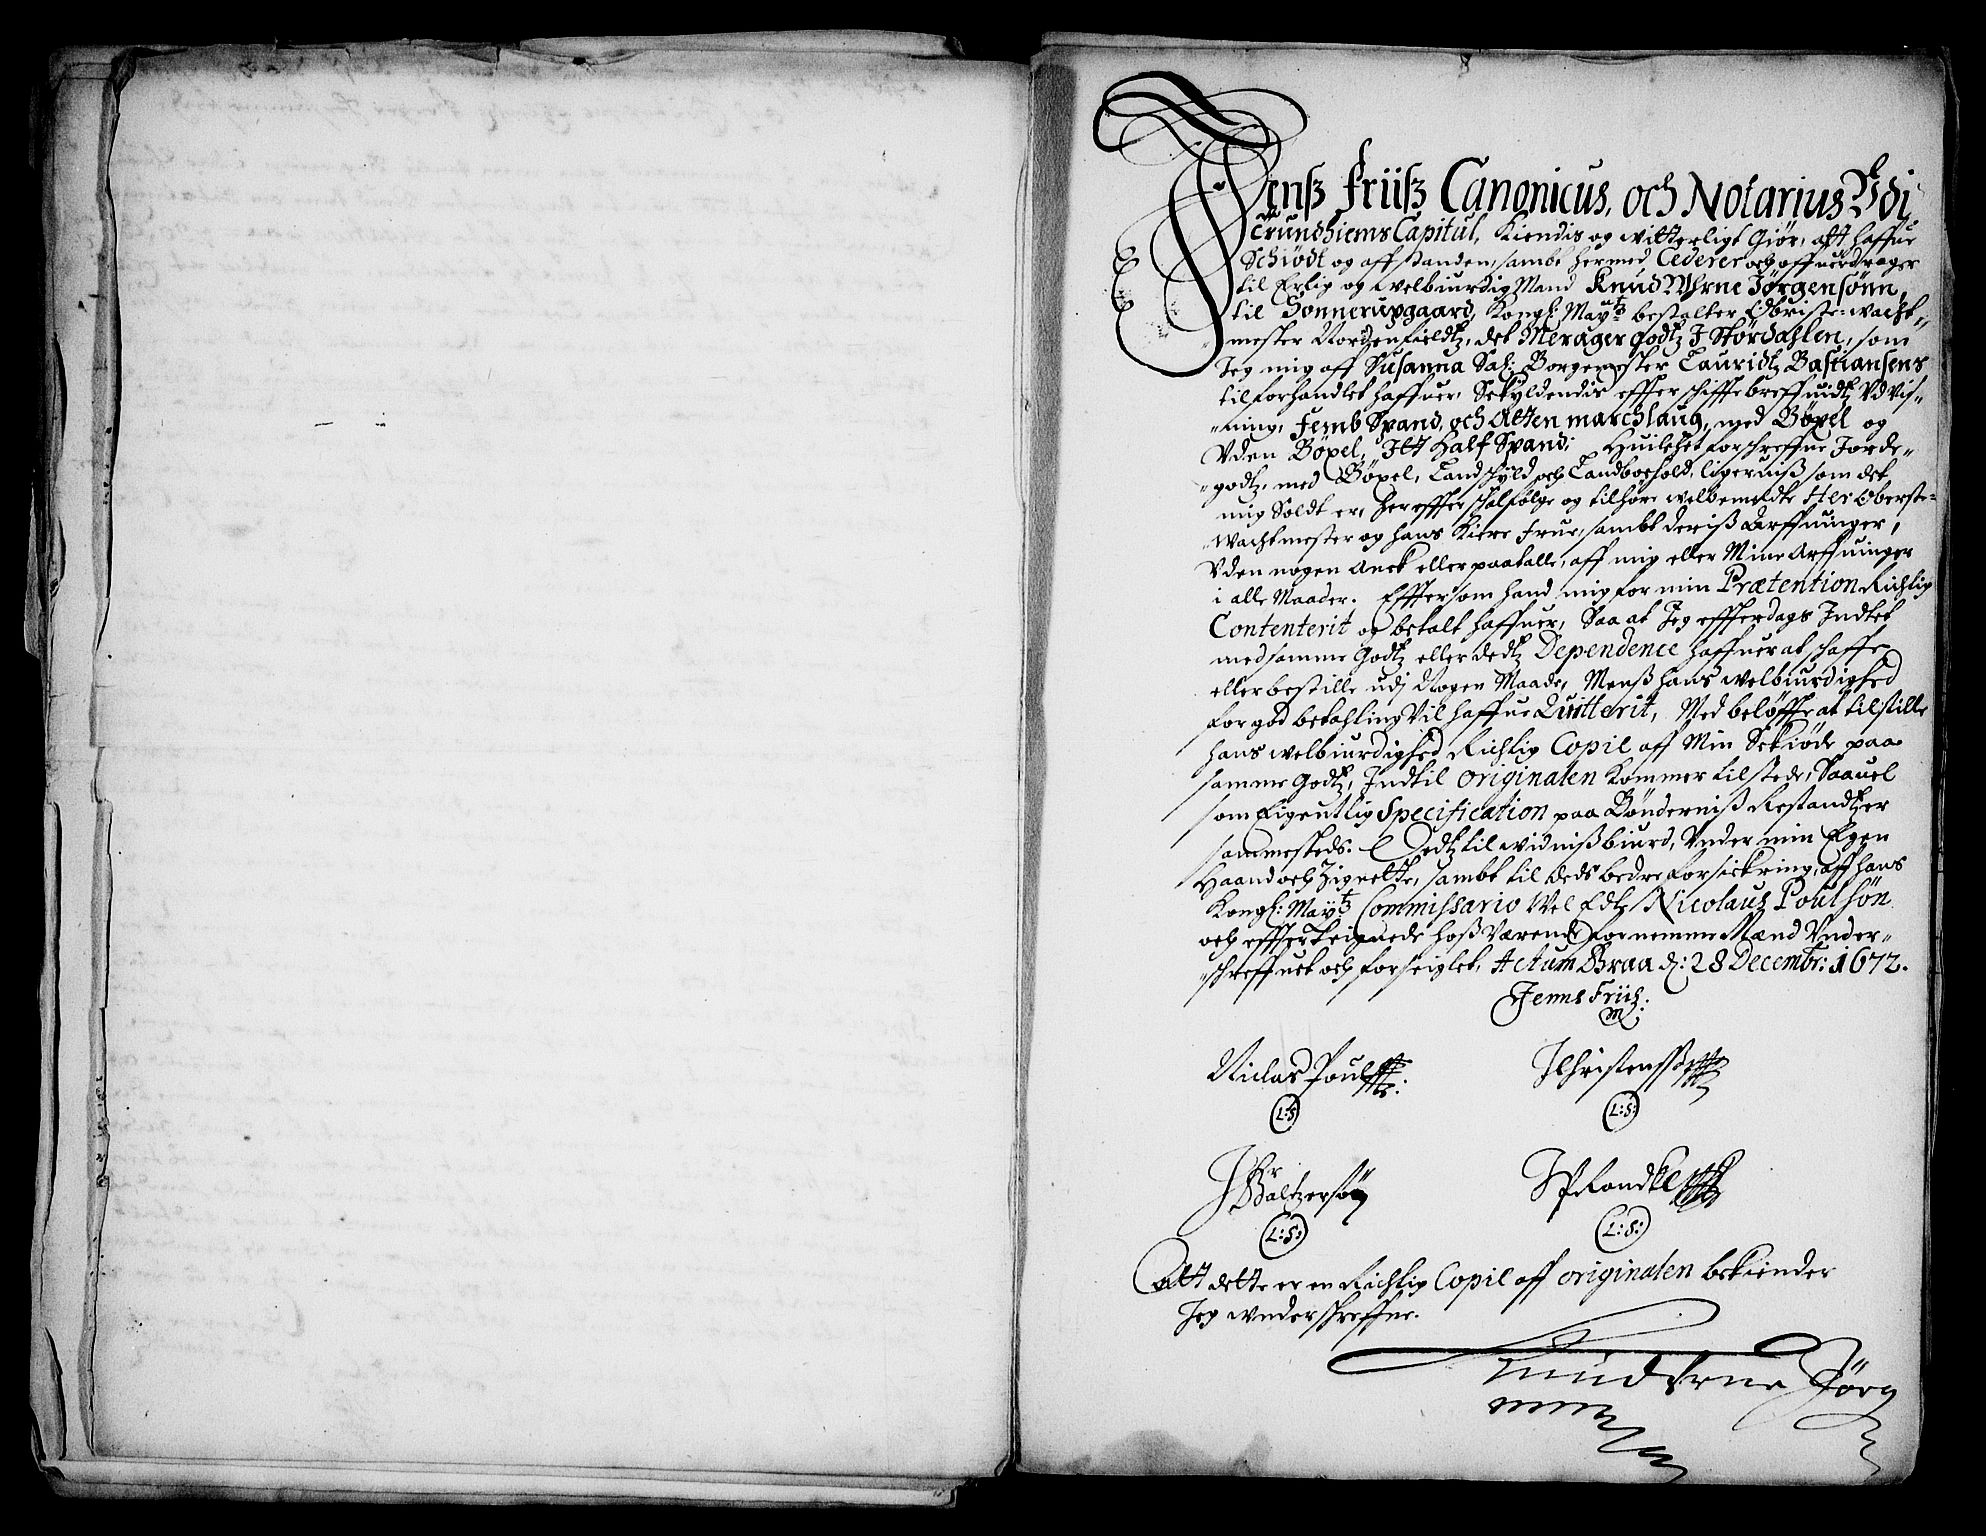 Jenß Friiß Canonicus, och Notarius Udi
Trundhiems Capitul, Kiendis og witterligt Giør, att haffue
Schiødt og affstanden, sambt hermed Cederer och offuerdrager
til Erlig og welbiurdig Mand Knud Wrne Jørgensønn,
til Sonnerupgaard, Kongl: May:tz bestalter Obriste: wacht-
mester Nordenfieldtz, det Merager godtz J Størdahlen, som
Jeg mig aff Susanna Sal: Borgemester Lauridtz Bastiansens
tilforhandlet haffuer, Skyldendis effter schiffte breffuidtz Vdvis-
ning, Femb Spand, och Otten marchlaug, med Bøxel og
Vden Bøxel, Itt Half Spand; Huilchet forschreffne Jorde-
godtz, med Bøxel, Landschyld och Landboehold, ligeruiß som det
mig Soldt er, her effter schal følge og tilhøre welbemeldte Her Oberste-
Wachtmester og hans Kiere Frue, sambt deriß Arffuinger,
Vden nogen Anck eller paatalle, aff mig eller Mine Arffuinger
i alle Maader. Efftersom hand mig for min Prætention Richtig
Contenterit og betalt haffuer, Saa at Jeg effterdags Indtet
med samme Godtz eller dedtz Dependence haffuer at schaffe
eller bestille udj Nogen Maade, Menß hans welbiurdighed
for god betahling Vil haffue Quitterit, Med beløffte at tilstille
hans welbiurdighed Richtig Copil aff Min Skiøde paa
samme Godtz, Indtil originalen Kommer tilstede, Saauel
som Eigentlig Specification paa Bønderniß Restandtzer
sammesteds. Dedtz til widnißbiurd, Vnder min Egen
Haand och Zignette, sambt til deds bedre forsickring, aff hans
Kongl: May:tz Commissario Wel Edle Nicolaus Poulsøn
och effterteignede hoß Værende fornemme Mænd Vnder-
schreffuet och forseiglet, Actum Braa d: 28 Decembr: 1672.
Jenns Friis:
Niclas Poulss:
J Christenss
L:S:
L:S:
J Baltzersøn
L:S:
L:S:
Att dette er en Richtig Copil aff originalen bekiender
Jeg wnderschreffne.
Knud Urne Jørg